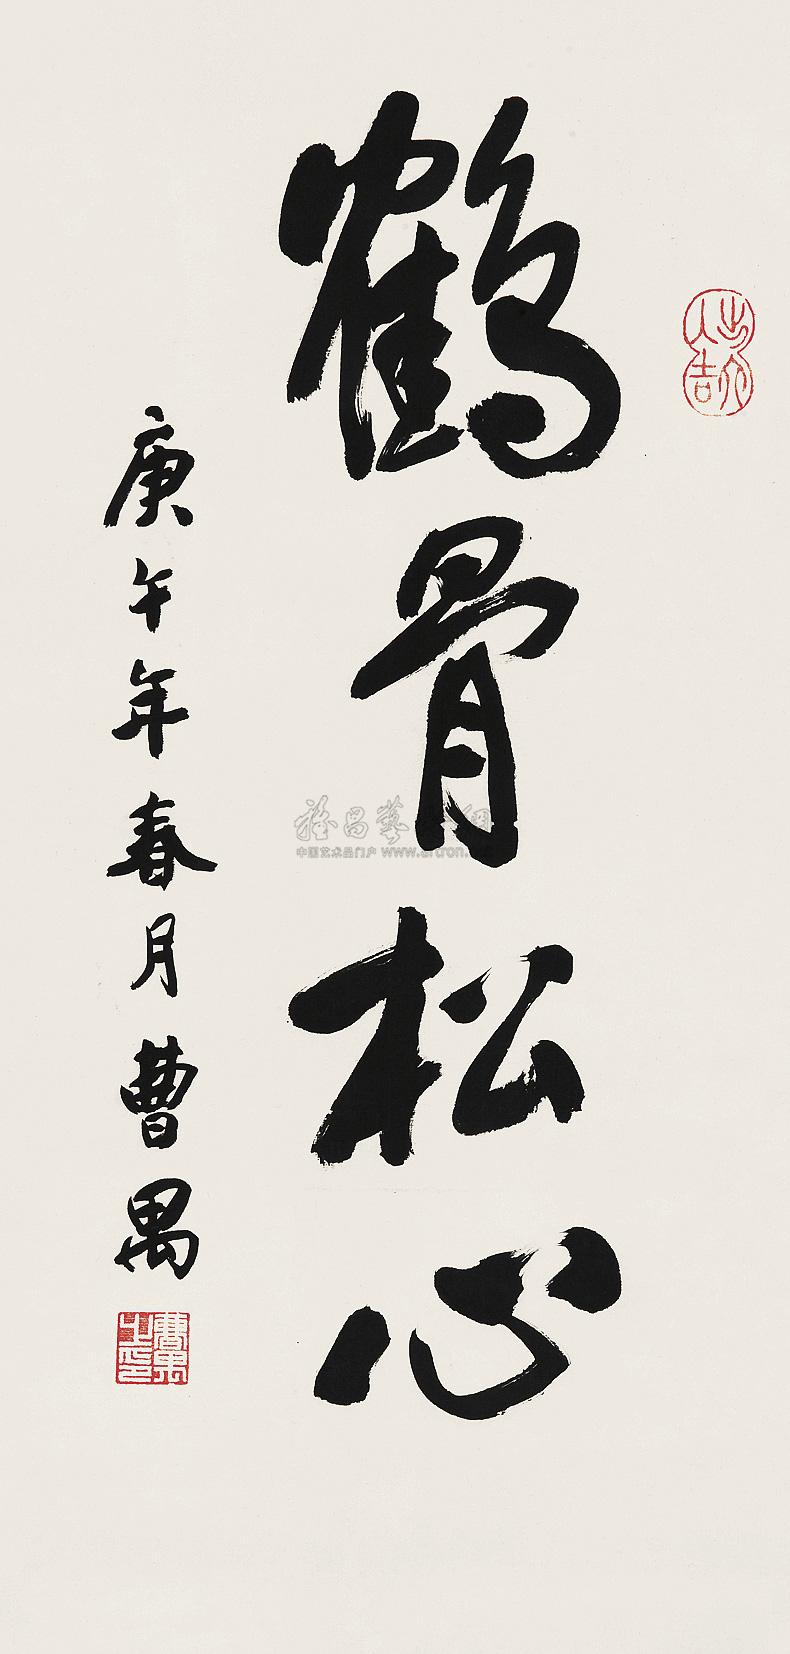 鶴骨松心
庚午年春月曹禺
曹禺之印
中国艺术品门户 www.artron.net